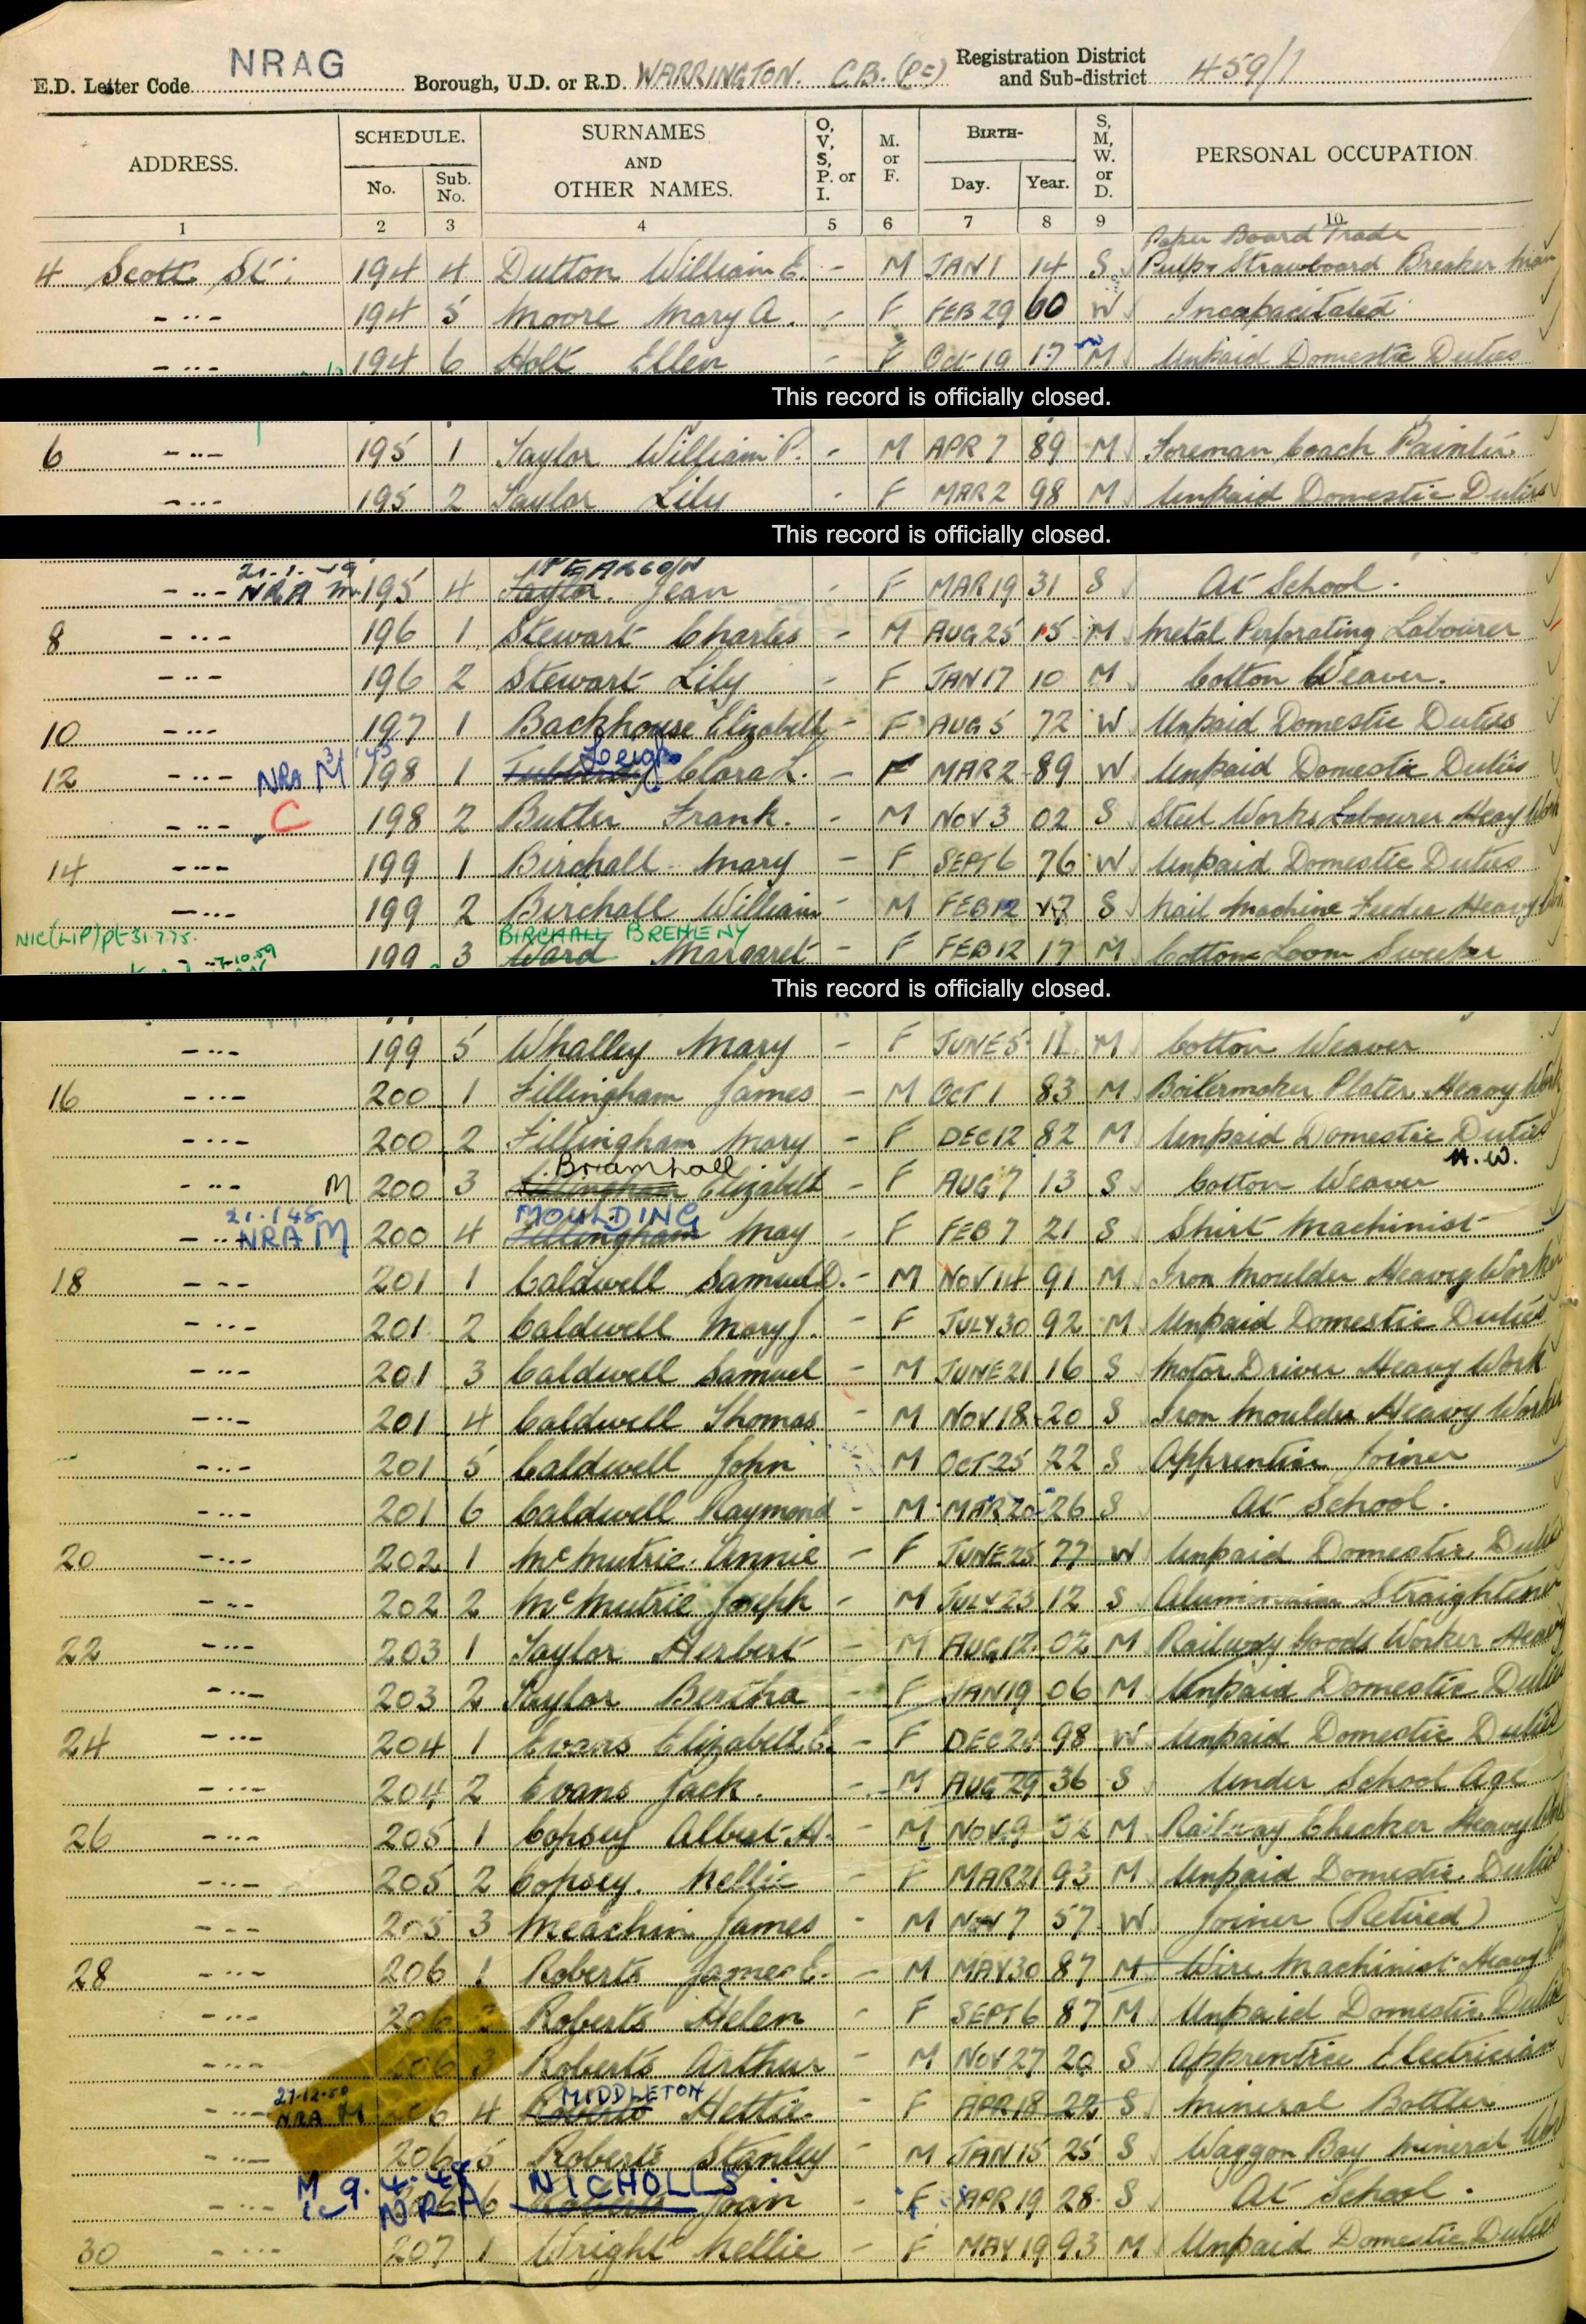 E.D. Letter Code NRAG Borough, U.D. or R.D. WARRINGTON. C.B. (Pt) Registration District and Sub-district 459/1
ADDRESS. SCHEDULE. No. Sub. No. SURNAMES AND OTHER NAMES. O, V, S, P. or I. M. or F. BIRTH- Day. Year. S, M, W. or D. PERSONAL OCCUPATION
1 2 3 4 5 6 7 8 9 10
Paper Board Trade
4 Scott St. 194 4 Dutton William E. - M JAN 1 14 S Pulp & Strawboard Breaker Man
-"- 194 5 Moore Mary A. - F FEB 29 60 W Incapacitated
-"- 194 6 Holt Ellen - F Oct 19 17 M Unpaid Domestic Duties
This record is officially closed.
6 -"- 195 1 Taylor William P. - M APR 7 89 M Foreman Coach Painter
-"- 195 2 Taylor Lily - F MAR 2 98 M Unpaid Domestic Duties
This record is officially closed.
PEARSON
-"- NRA M. 195 4 Taylor Jean - F MAR 19 31 S At School.
8 -"- 196 1 Stewart Charles - M AUG 25 15 M Metal Perforating Labourer
-"- 196 2 Stewart Lily - F JAN 17 10 M Cotton Weaver.
10 -"- 197 1 Backhouse Elizabeth - F AUG 5 72 W Unpaid Domestic Duties
Leigh
12 -"- NRA M 198 1 Clara L. - F MAR 2 89 W Unpaid Domestic Duties
-"- C 198 2 Butler Frank. - M NOV 3 02 S Steel Works Labourer Heavy Work
14 -"- 199 1 Birchall Mary - F SEPT 6 76 W Unpaid Domestic Duties
-"- 199 2 Birchall William - M FEB 12 S Nail Machine Feeder Heavy
NIC(LIP)pt 31.7.75. BIRCHALL BREHENY
-"- 7.10.59 199 3 Ward Margaret - F FEB 12 17 M Cotton Loom Sweeper
This record is officially closed.
-"- 199 5 Whalley Mary - F JUNE 5 11 M Cotton Weaver
16 -"- 200 1 Fillingham James - M OCT 1 83 M Boilermaker Plater. Heavy Work
-"- 200 2 Fillingham Mary - F DEC 12 82 M Unpaid Domestic Duties
Bramhall H.W.
-"- M 200 3 Fillingham Elizabeth - F AUG 7 13 S Cotton Weaver
21.1.45 MOULDING
-"- NRA M 200 4 Fillingham May - F FEB 7 21 S Shirt Machinist
18 -"- 201 1 Caldwell Samuel D. - M NOV 14 91 M Iron Moulder Heavy Worker
-"- 201 2 Caldwell Mary J. - F JULY 30 92 M Unpaid Domestic Duties
-"- 201 3 Caldwell Samuel - M JUNE 21 16 S Motor Driver Heavy Work
-"- 201 4 Caldwell Thomas - M NOV 18 20 S Iron Moulder Heavy Worker
-"- 201 5 Caldwell John - M OCT 25 22 S Apprentice Joiner
-"- 201 6 Caldwell Raymond - M MAR 20 26 S At School.
20 -"- 202 1 McMutrie Annie - F JUNE 25 77 W Unpaid Domestic Duties
-"- 202 2 McMutrie Joseph - M JULY 23 12 S Aluminium Straightener
22 -"- 203 1 Taylor Herbert - M AUG 12 02 M Railway Goods Worker Heavy
-"- 203 2 Taylor Bertha - F JAN 19 06 M Unpaid Domestic Duties
24 -"- 204 1 Evans Elizabeth E. - F DEC 98 W Unpaid Domestic Duties
-"- 204 2 Evans Jack. - M AUG 29 36 S Under School Age
26 -"- 205 1 Copsey Albert H. - M NOV 9 M Railway Checker Heavy Work
-"- 205 2 Copsey. Nellie - F MAR 21 93 M Unpaid Domestic Duties
-"- 205 3 Meachin James - M NOV 7 57 W Joiner (Retired)
28 -"- 206 1 Roberts James E. - M MAY 30 87 M Wire Machinist Heavy
-"- 206 2 Roberts Helen - F SEPT 6 87 M Unpaid Domestic Duties
-"- 206 3 Roberts Arthur - M NOV 27 20 S Apprentice Electrician
27.12.50 MIDDLETON
-"- NRA M 206 4 Roberts Hettie. - F APR 18 22 S Mineral Bottler
-"- 206 5 Roberts Stanley - M JAN 15 25 S Waggon Boy Mineral
M 9.4.48 NICHOLLS
-"- NRA 206 6 Roberts Joan - F APR 19 28 S At School.
30 -"- 207 1 Wright Nellie - F MAY 19 93 M Unpaid Domestic Duties